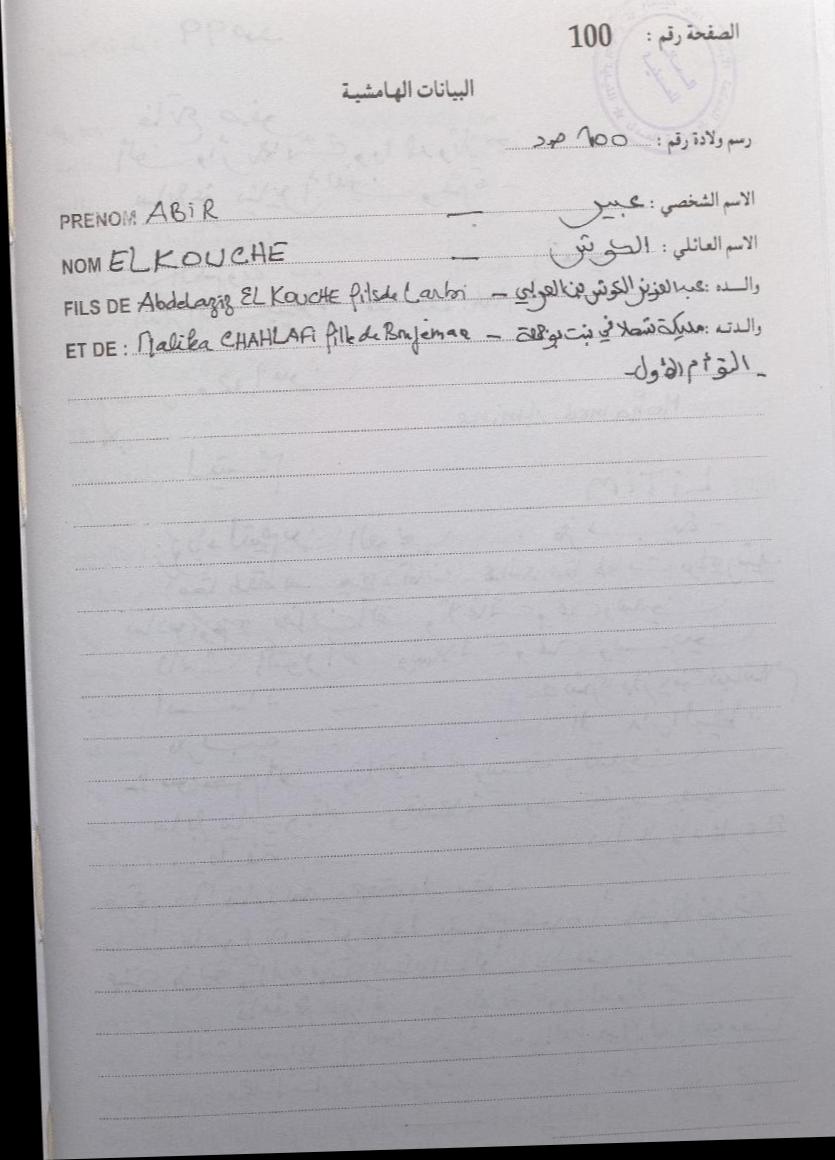 الصفحة رقم : 100
البيانات الهامشية
رسم ولادة رقم : 100
PRENOM ABIR — الاسم الشخصي : عبير
NOM ELKOUCHE — الاسم العائلي : الكوش
FILS DE Abdelaziz EL KOUCHE fils de Larbi — والـده : عبد العزيز الكوش بن العربي
ET DE : Malika CHAHLAFI fille de Boujemaa — والدته : مليكة شهلافي بنت بوجمعة
- التوأم الأول -